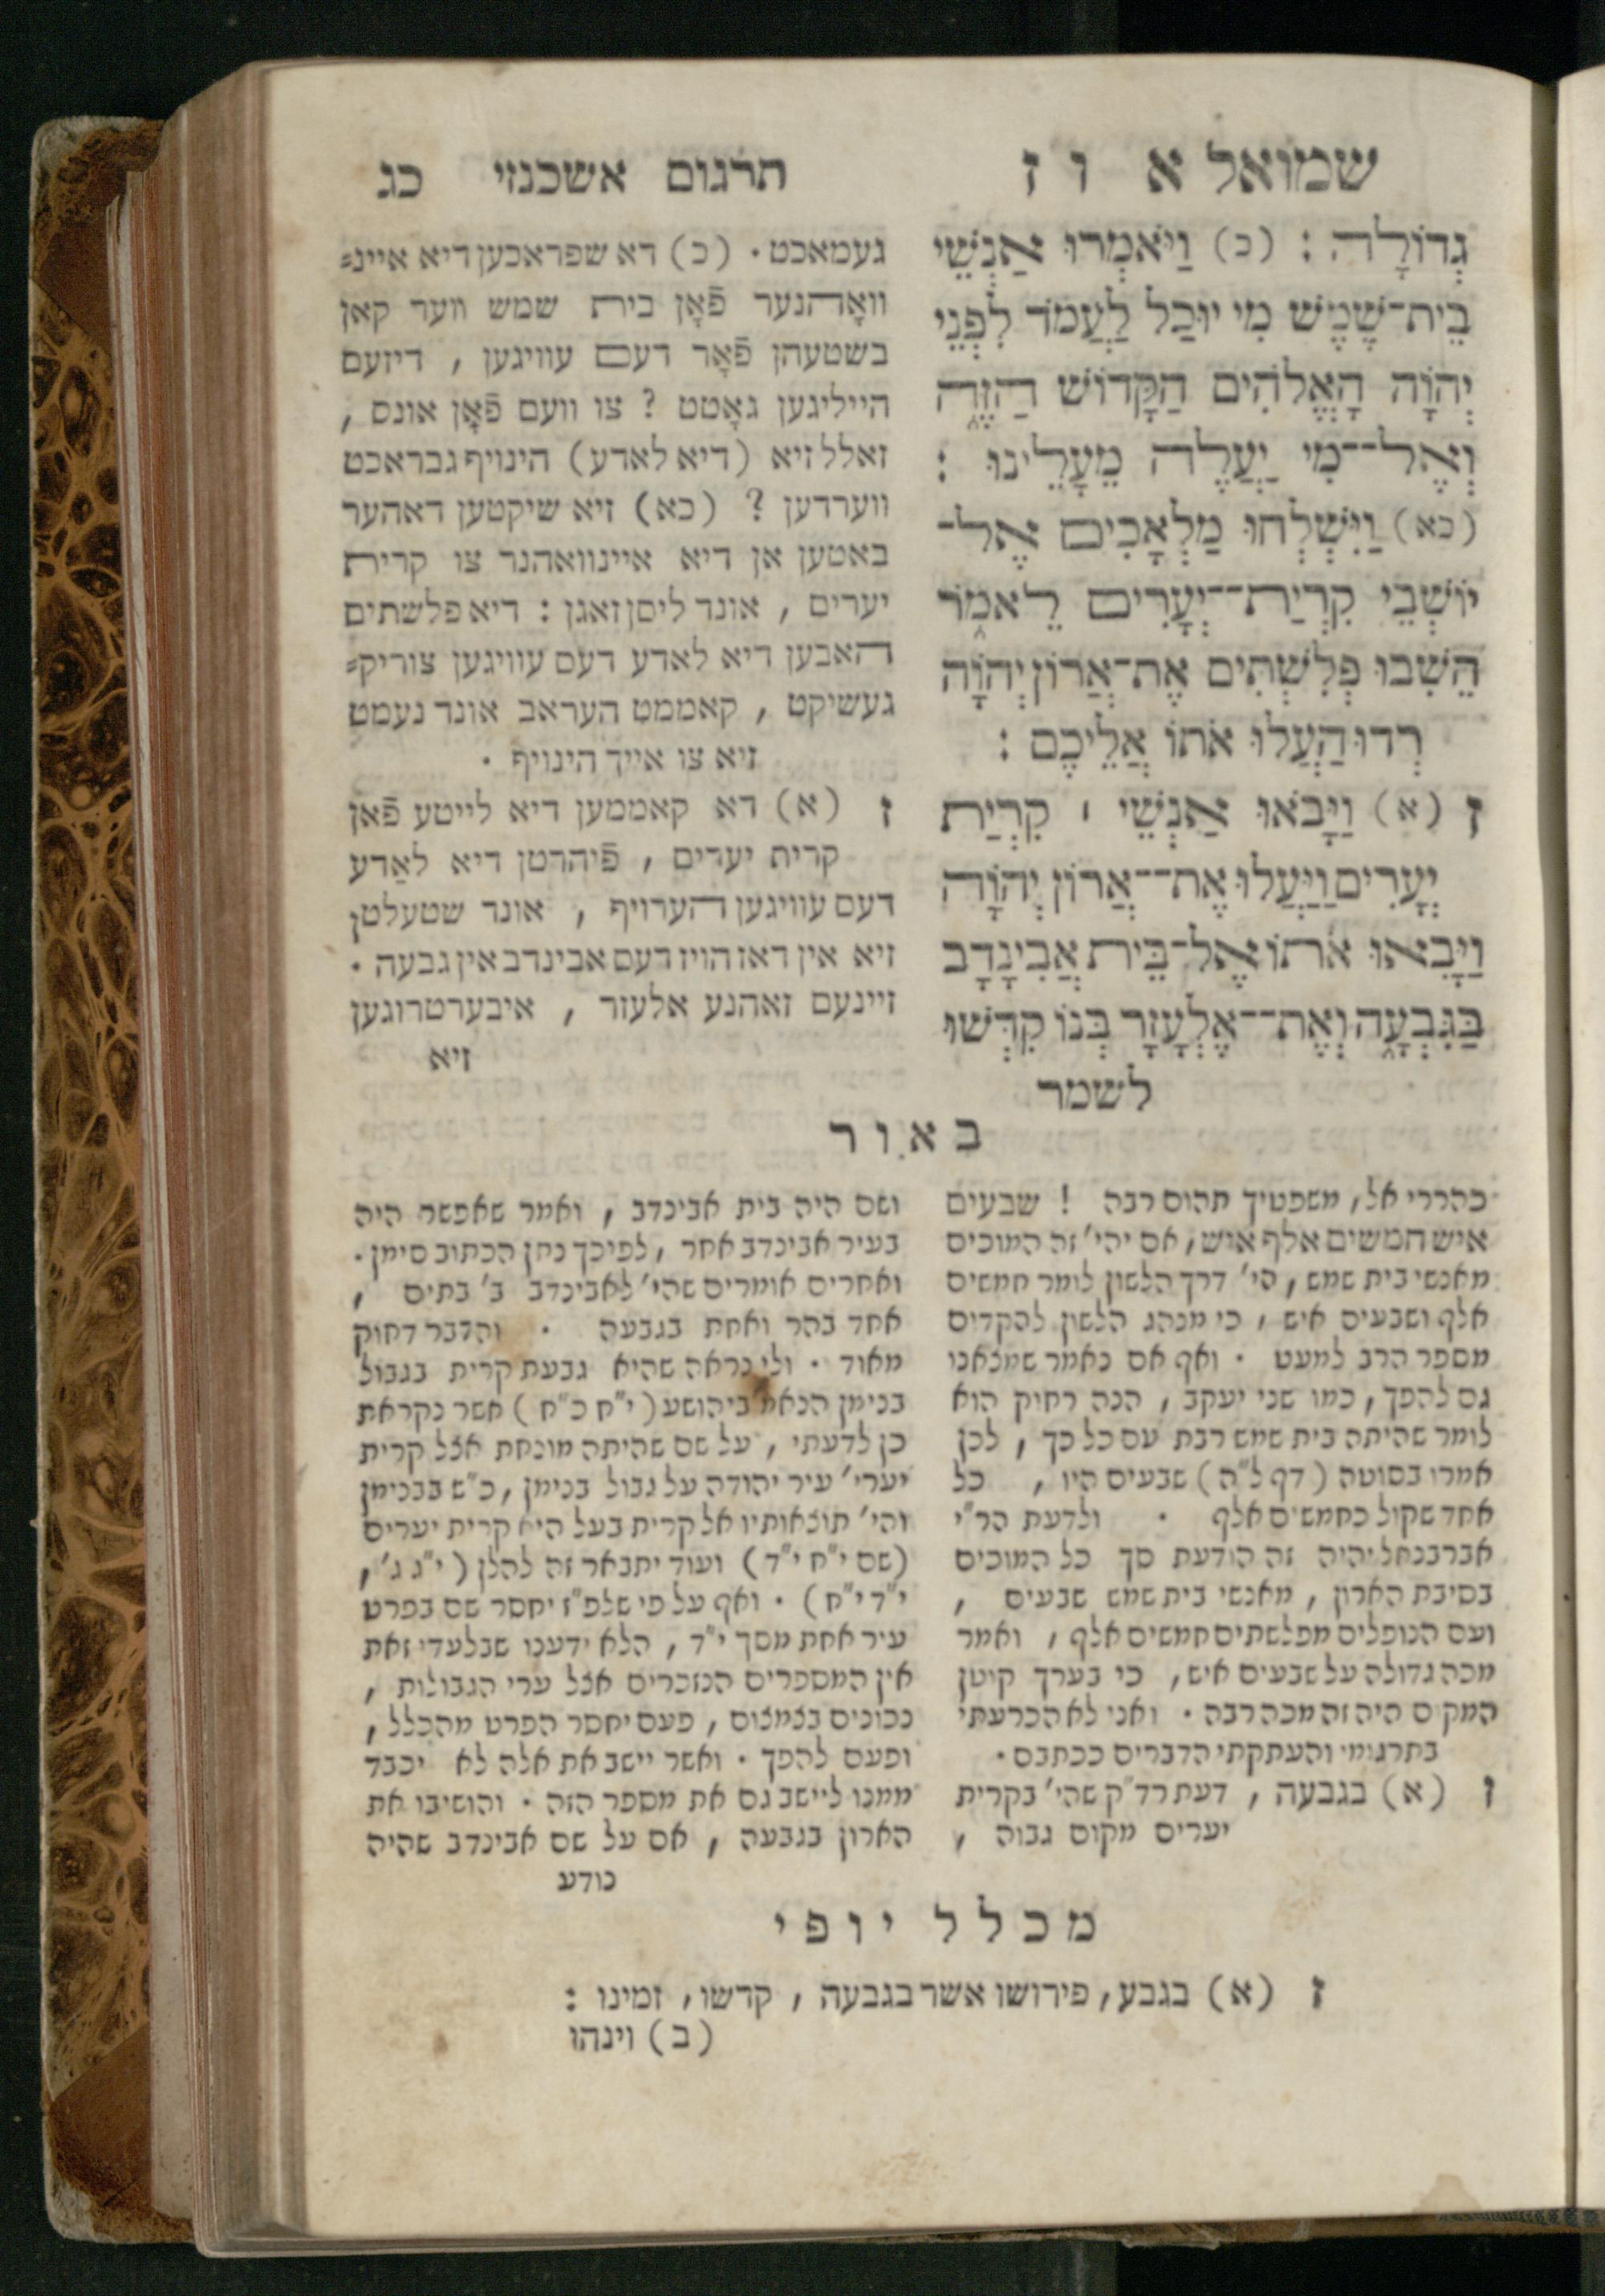 שמואל א ו ז
תרגום אשכנזי כג
גְדוֹלָה : (כ) וַיֹּאמְרוּ אַנְשֵׁי
בֵית־שֶׁמֶשׁ מִי יוּכַל לַעֲמֹד לִפְנֵי
יְהוָֹה הָאֱלֹהִים הַקָּדוֹשׁ הַזֶּה
וְאֶל־־מִי יַעֲלֶה מֵעָלֵינוּ :
(כא) וַיִּשְׁלְחוּ מַלְאָכִים אֶל־
יוֹשְׁבֵי קִרְיַת־־יְעָרִים לֵאמֹר
הֵשִׁבוּ פְלִשְׁתִּים אֶת־אֲרוֹן יְהוָֹה
רְדוּ הַעֲלוּ אֹתוֹ אֲלֵיכֶם :
ז (א) וַיָּבֹאוּ אַנְשֵׁי ׀ קִרְיַת
יְעָרִים וַיַּעֲלוּ אֶת־־אֲרוֹן יְהוָֹה
וַיָּבִאוּ אֹתוֹ אֶל־בֵּית אֲבִינָדָב
בַּגִּבְעָה וְאֶת־־אֶלְעָזָר בְּנוֹ קִדְּשׁוּ
לשמר
געמאכט . (כ) דא שפראכען דיא איינ=
וואָהנער פֿאָן בית שמש ווער קאן
בשטעהן פֿאָר דעם עוויגען , דיזעם
הייליגען גאָטט ? צו וועם פֿאָן אונס ,
זאלל זיא (דיא לאדע) הינויף גבראכט
ווערדען ? (כא) זיא שיקטען דאהער
באטען אן דיא איינוואהנר צו קרית
יערים , אונד ליסן זאגן : דיא פלשתים
האבען דיא לאדע דעם עוויגען צוריק=
געשיקט , קאממט העראב אונד נעמט
זיא צו אייך הינויף .
ז (א) דא קאממען דיא לייטע פֿאן
קרית יערים , פֿיהרטן דיא לאַדע
דעם עוויגען הערויף , אונד שטעלטן
זיא אין דאז הויז דעם אבינדב אין גבעה .
זיינעם זאהנע אלעזר , איבערטרוגען
זיא
באור
כהררי אל, משפטיך תהום רבה ! שבעים
איש חמשים אלף איש, אם יהי' זה המוכים
מאנשי בית שמש , הי' דרך הלשון לומר חמשים
אלף ושבעים איש , כי מנהג הלשון להקדים
מספר הרב למעט . ואף אם נאמר שמצאנו
גם להפך , כמו שני יעקב , הנה רחוק הוא
לומר שהיתה בית שמש רבת עם כל כך , לכן
אמרו בסוטה (דף ל"ה) שבעים היו , כל
אחד שקול כחמשים אלף . ולדעת הר"י
אברבנאל יהיה זה הודעת סך כל המוכים
בסיבת הארון , מאנשי בית שמש שבעים ,
ועם הנופלים מפלשתים חמשים אלף , ואמר
מכה גדולה על שבעים איש, כי בערך קיטן
המקום היה זה מכה רבה . ואני לא הכרעתי
בתרגומי והעתקתי הדברים ככתבם .
ז (א) בגבעה , דעת רד"ק שהי' בקרית
יערים מקום גבוה ,
ושם היה בית אבינדב , ואמר שאפשר היה
בעיר אבינדב אחר , לפיכך נתן הכתוב סימן .
ואחרים אומרים שהי' לאבינדב ב' בתים ,
אחד בהר ואחת בגבעה . והדבר דחוק
מאוד . ולי נראה שהיא גבעת קרית בגבול
בנימן הנאמ' ביהושע (י"ח כ"ח) אשר נקראת
כן לדעתי , על שם שהיתה מונחת אצל קרית
יערי' עיר יהודה על גבול בנימן , כ"ש בבנימן
והי' תוצאותיו אל קרית בעל היא קרית יערים
(שם י"ח י"ד) ועוד יתבאר זה להלן (י"ג ג' ,
י"ד י"ח) . ואף על פי שלפ"ז יחסר שם בפרט
עיר אחת מסך י"ד , הלא ידענו שבלעדי זאת
אין המספרים הנזכרים אצל ערי הגבולות ,
נכונים בצמצום , פעם יחסר הפרט מהכלל ,
ופעם להפך . ואשר יישב את אלה לא יכבד
ממנו ליישב גם את מספר הזה . והושיבו את
הארון בגבעה , אם על שם אבינדב שהיה
נודע
מכלל יופי
ז (א) בגבע, פירושו אשר בגבעה , קדשו, זמינו :
(ב) וינהו